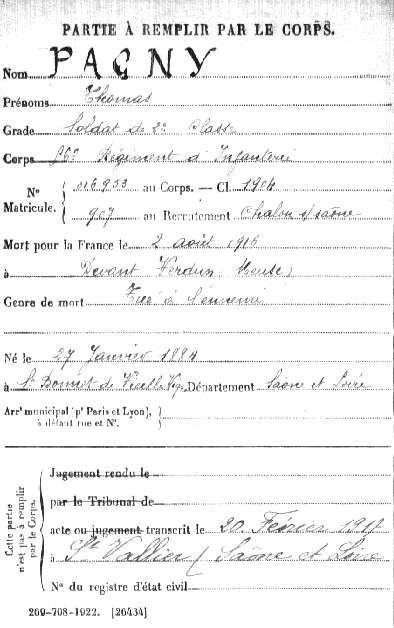 PARTIE À REMPLIR PAR LE CORPS.
Nom PAGNY
Prénoms Thomas
Grade Soldat de 2e Classe
Corps 56e Régiment d'Infanterie
No Matricule. 016933 au Corps. — Cl. 1904
907 au Recrutement Chalon s/saône
Mort pour la France le 2 août 1916
à Devant Verdun (Meuse)
Genre de mort Tué à l'ennemi
Né le 27 Janvier 1884
à St Bonnet de Vieille Vigne Département Saône et Loire
Arrt municipal (pr Paris et Lyon),
à défaut rue et No.
Cette partie
n'est pas à remplir
par le Corps.
Jugement rendu le
par le Tribunal de
acte ou jugement transcrit le 20 Février 1917
à St Vallier (Saône et Loire
No du registre d'état civil
269-708-1922. [26434]